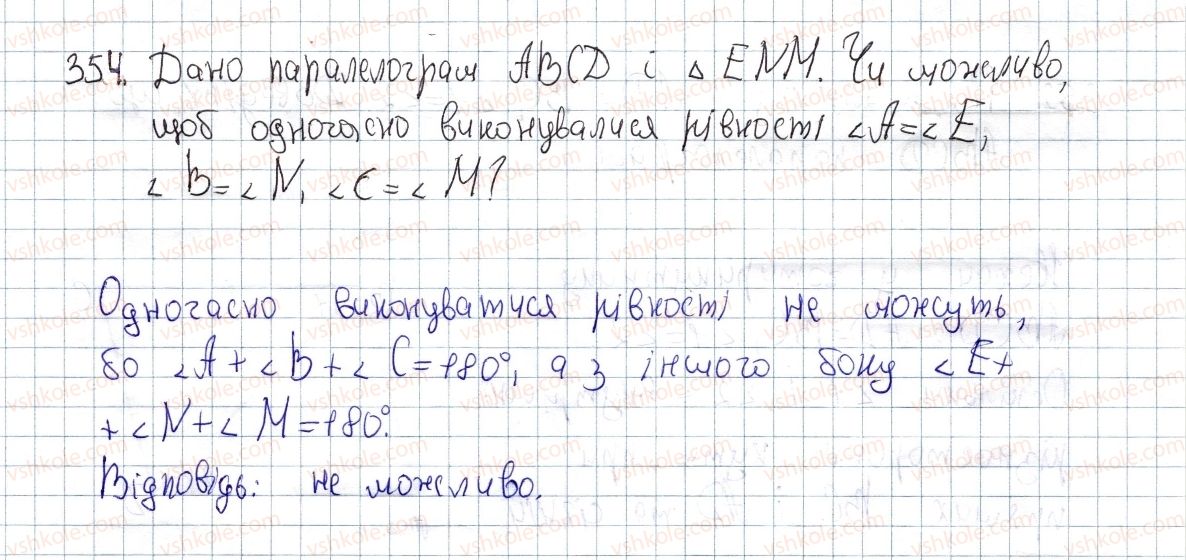 354. Дано паралелограм ABCD і △ENM. Чи можливо,
щоб одночасно виконувалися рівності ∠A=∠E,
∠B=∠N, ∠C=∠M?
Одночасно виконуватися рівності не можуть,
бо ∠A+∠B+∠C=180°, а з іншого боку ∠E+
+∠N+∠M=180°.
Відповідь: не можливо.